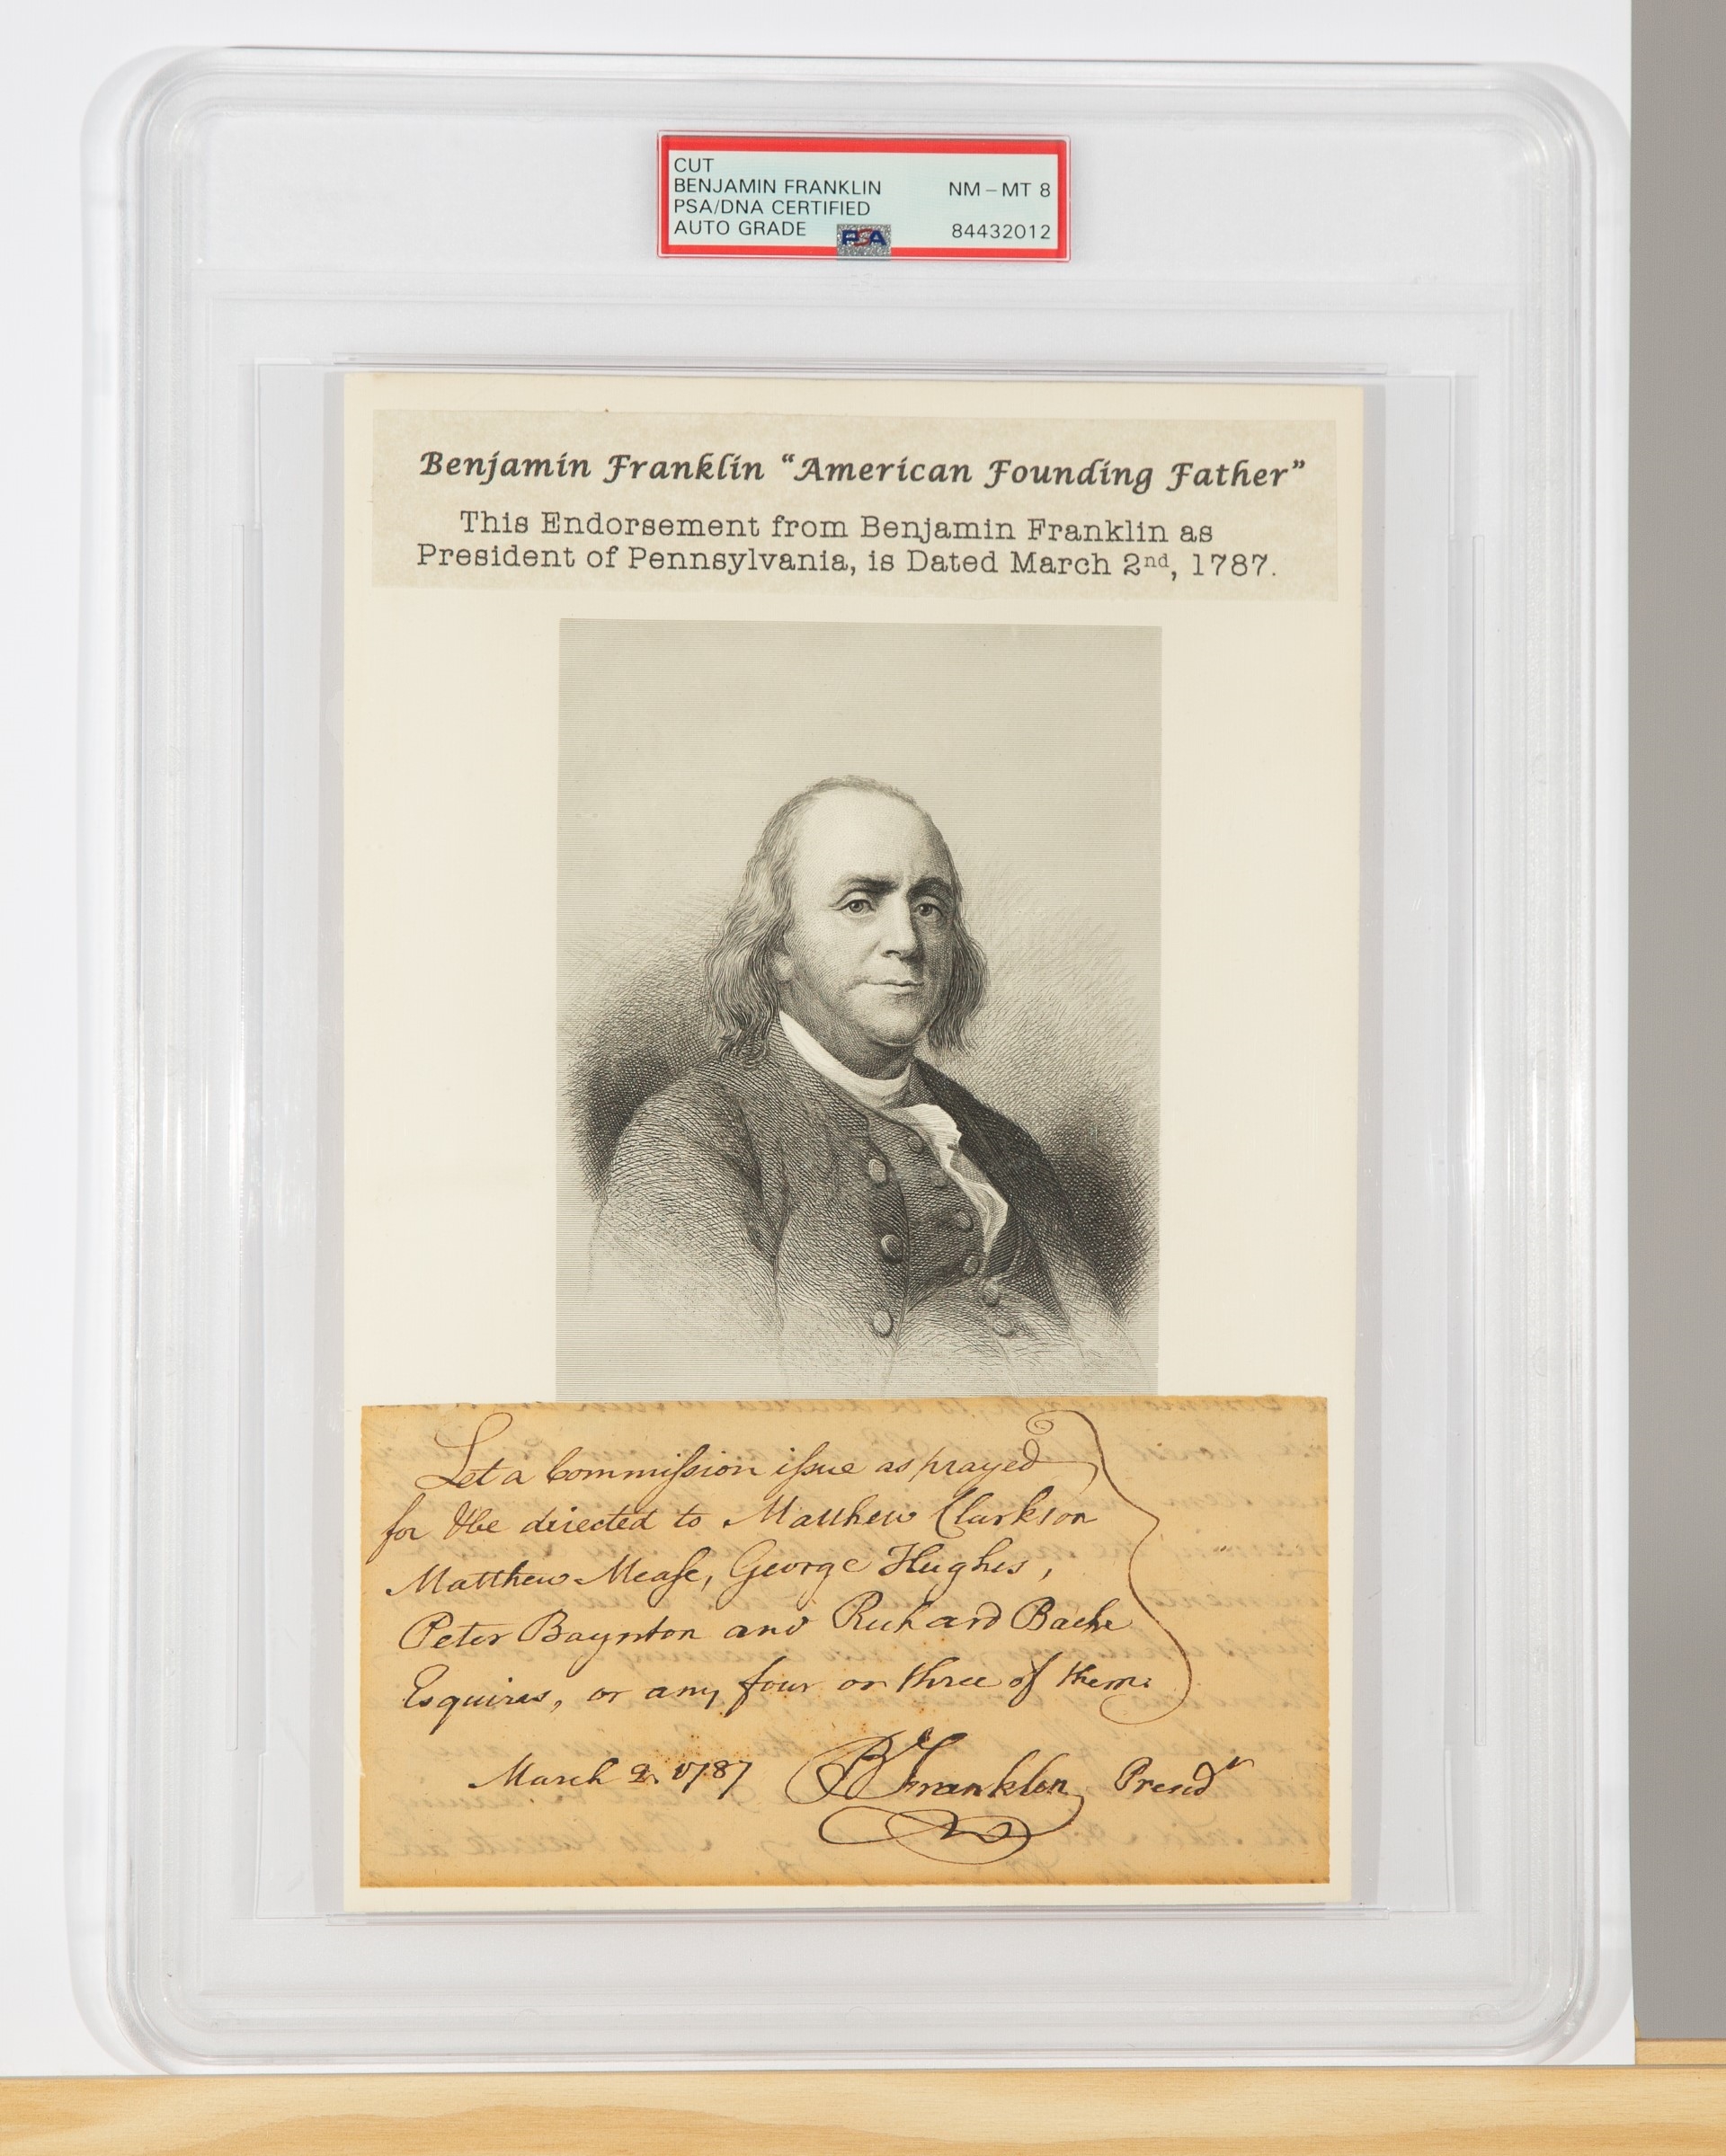 CUT
BENJAMIN FRANKLIN NM – MT 8
PSA/DNA CERTIFIED
AUTO GRADE PSA 84432012
Benjamin Franklin “American Founding Father”
This Endorsement from Benjamin Franklin as
President of Pennsylvania, is Dated March 2nd, 1787.
Let a Commiſsion iſsue as prayed
for & be directed to Matthew Clarkson
Matthew Meaſe, George Hughes,
Peter Baynton and Richard Bache
Esquires, or any four or three of them.
March 2. 1787 B Franklin Presidt